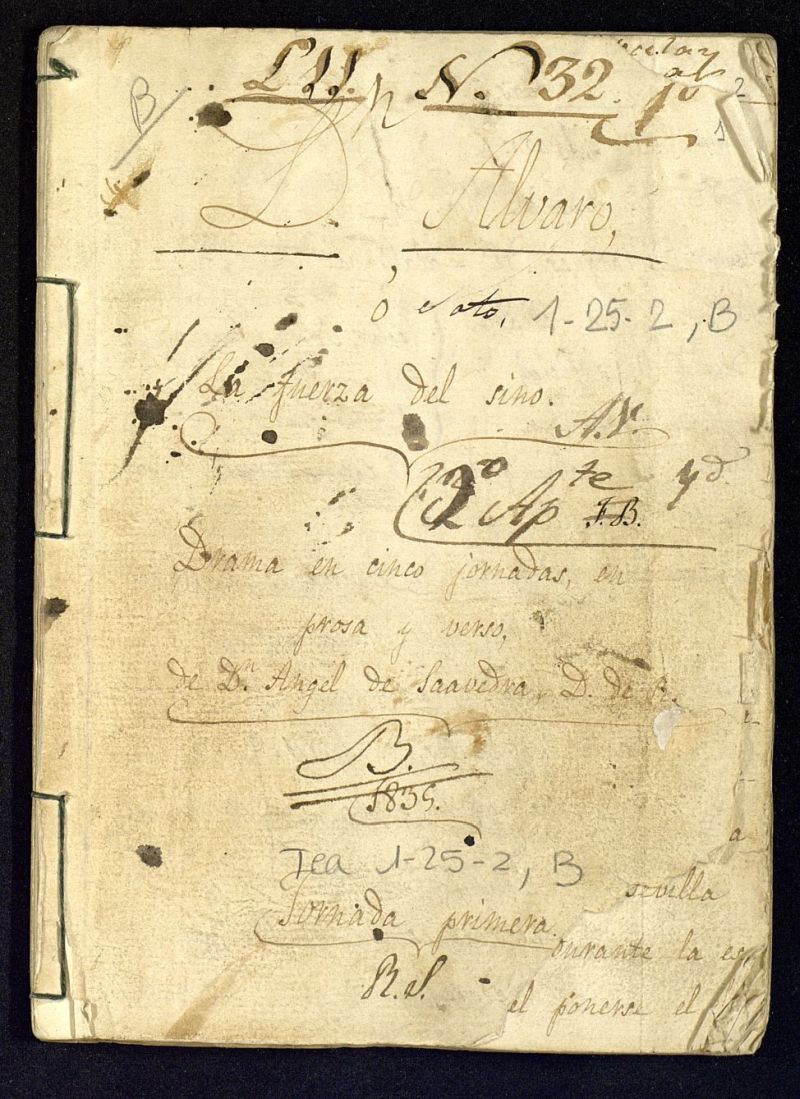 B
N. 32.
2
1
D. Alvaro,
ó 1-25-2, B
La fuerza del sino.
2º Apte
F.B.
Drama en cinco jornadas, en
prosa y verso,
de Dn. Angel de Saavedra, D. de R.
B.
1835.
Tea 1-25-2, B
sevilla
Jornada primera.
durante la es
el ponerse el